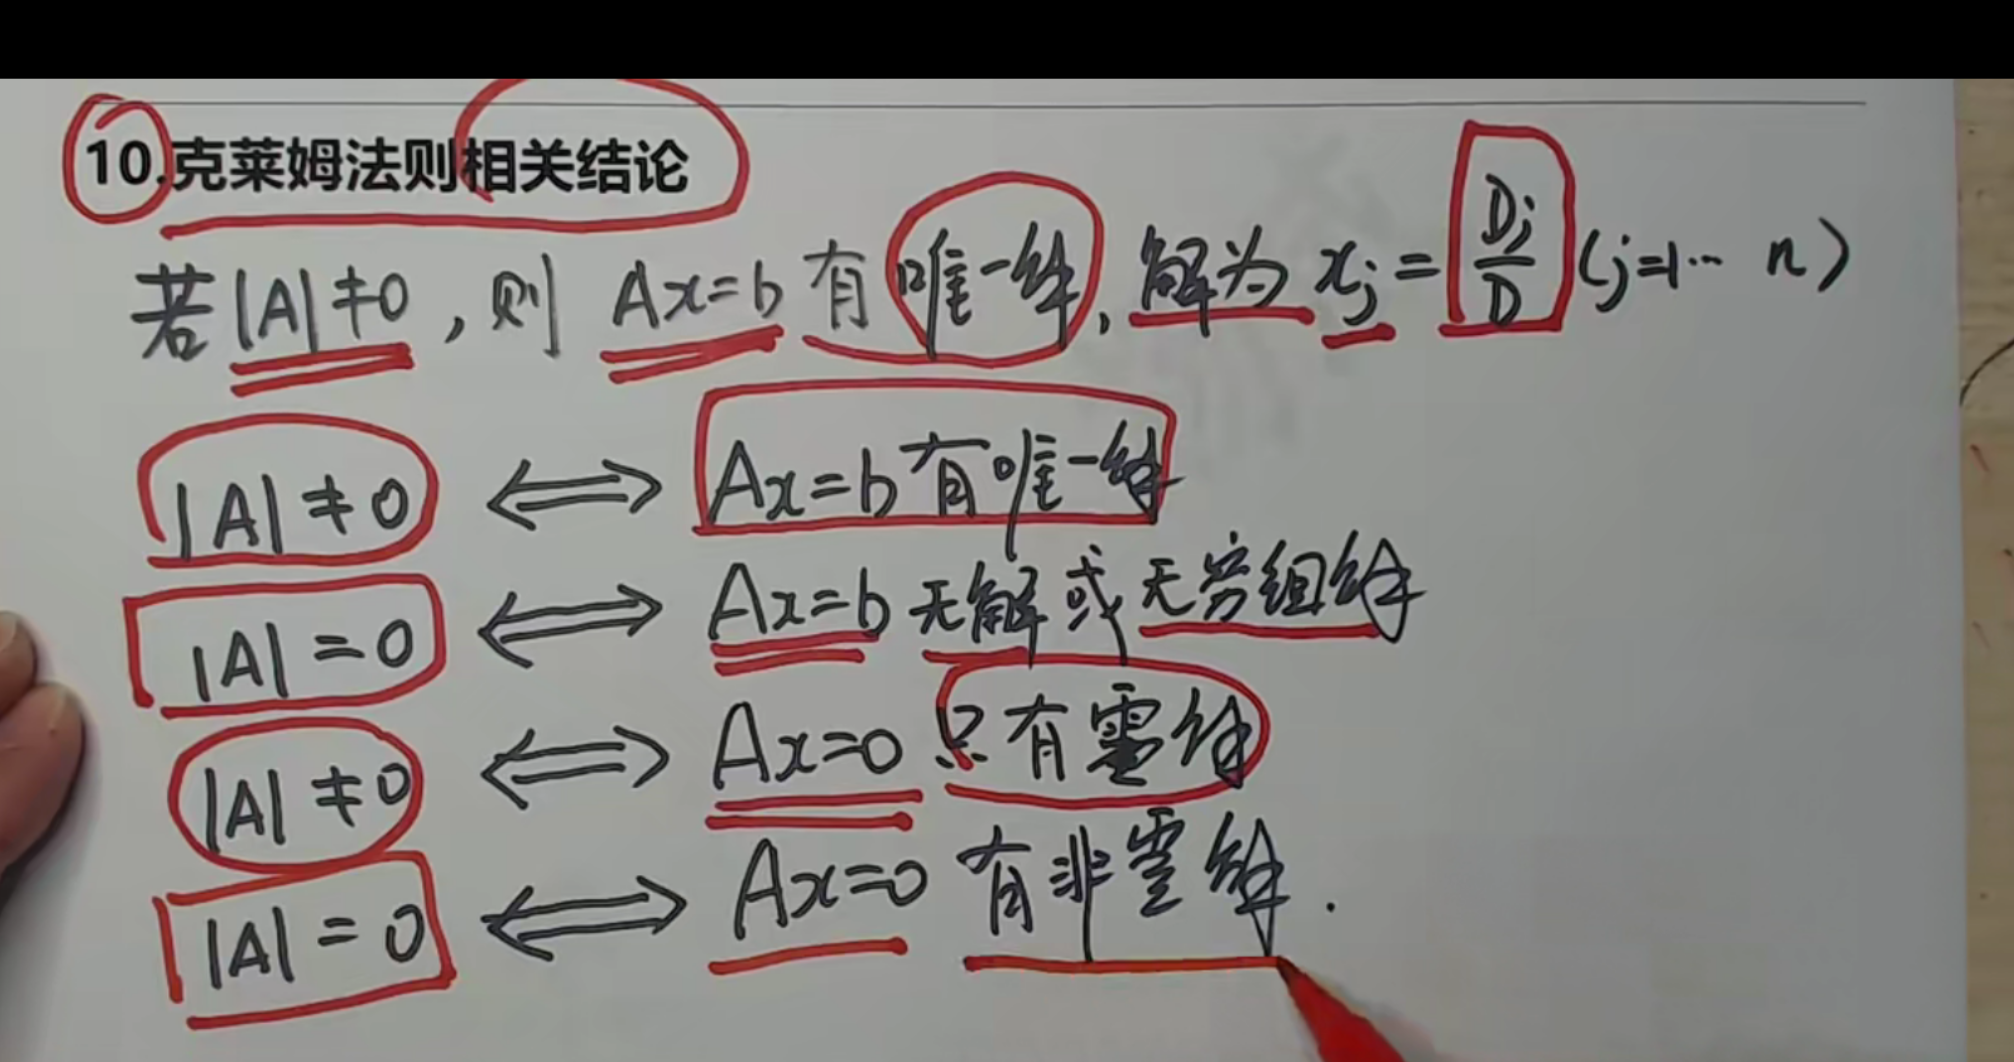 10.克莱姆法则相关结论
若|A|≠0,则 Ax=b有唯一解,解为 xj=Dj/D (j=1… n)
|A|≠0 ⟺ Ax=b有唯一解
|A|=0 ⟺ Ax=b 无解或无穷组解
|A|≠0 ⟺ Ax=0 只有零解
|A|=0 ⟺ Ax=0 有非零解.